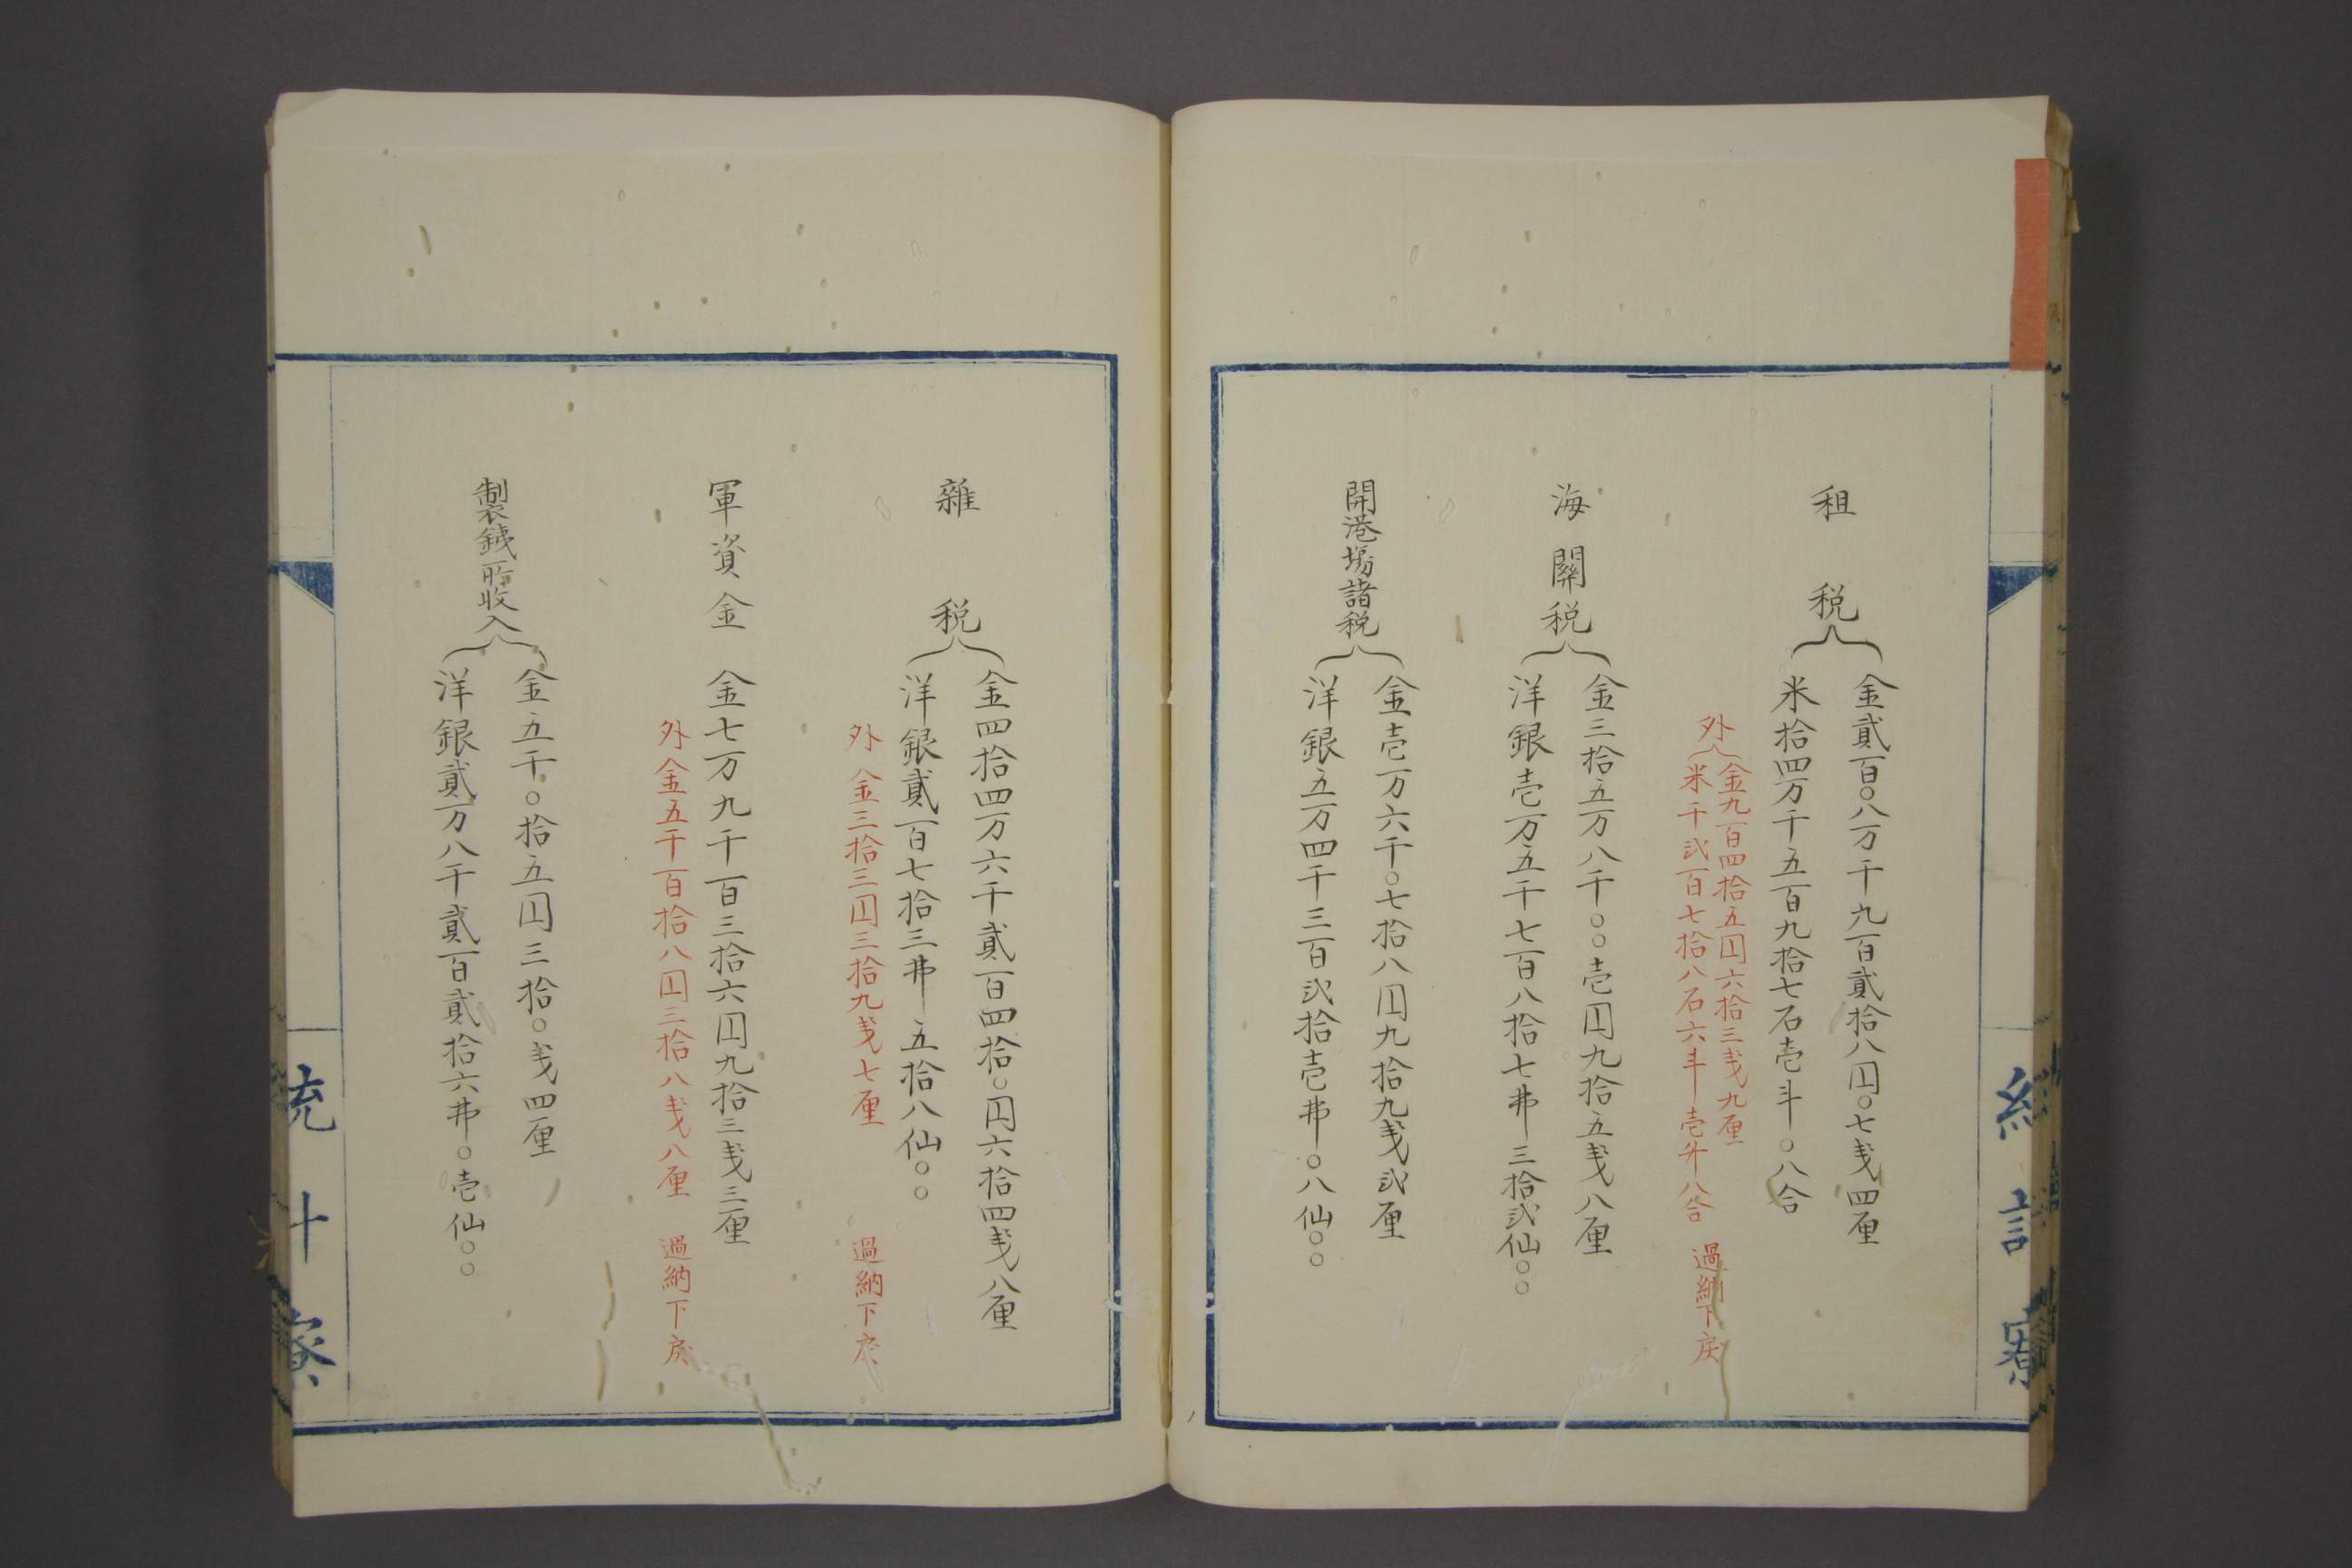 租税
金貳百〇八万千九百貳拾八円〇七戔四厘
米拾四万千五百九拾七石壱斗〇八合
外
金九百四拾五円六拾三戔九厘
米千弐百七拾八石六斗壱升八合
過納下戻
海關税
金三拾五万八千〇〇壱円九拾五戔八厘
洋銀壱万五千七百八拾七弗三拾弐仙〇〇
開港場諸税
金壱万六千〇七拾八円九拾九戔弐厘
洋銀五万四千三百弐拾壱弗〇八仙〇〇
雜税
金四拾四万六千貳百四拾〇円六拾四戔八厘
洋銀貳百七拾三弗五拾八仙〇〇
外金三拾三円三拾九戔七厘 過納下戻
軍資金 金七万九千百三拾六円九拾三戔三厘
外金五千百拾八円三拾八戔八厘 過納下戻
製鉄所收入
金五千〇拾五円三拾〇戔四厘
洋銀貳万八千貳百貳拾六弗〇壱仙〇〇
統計寮